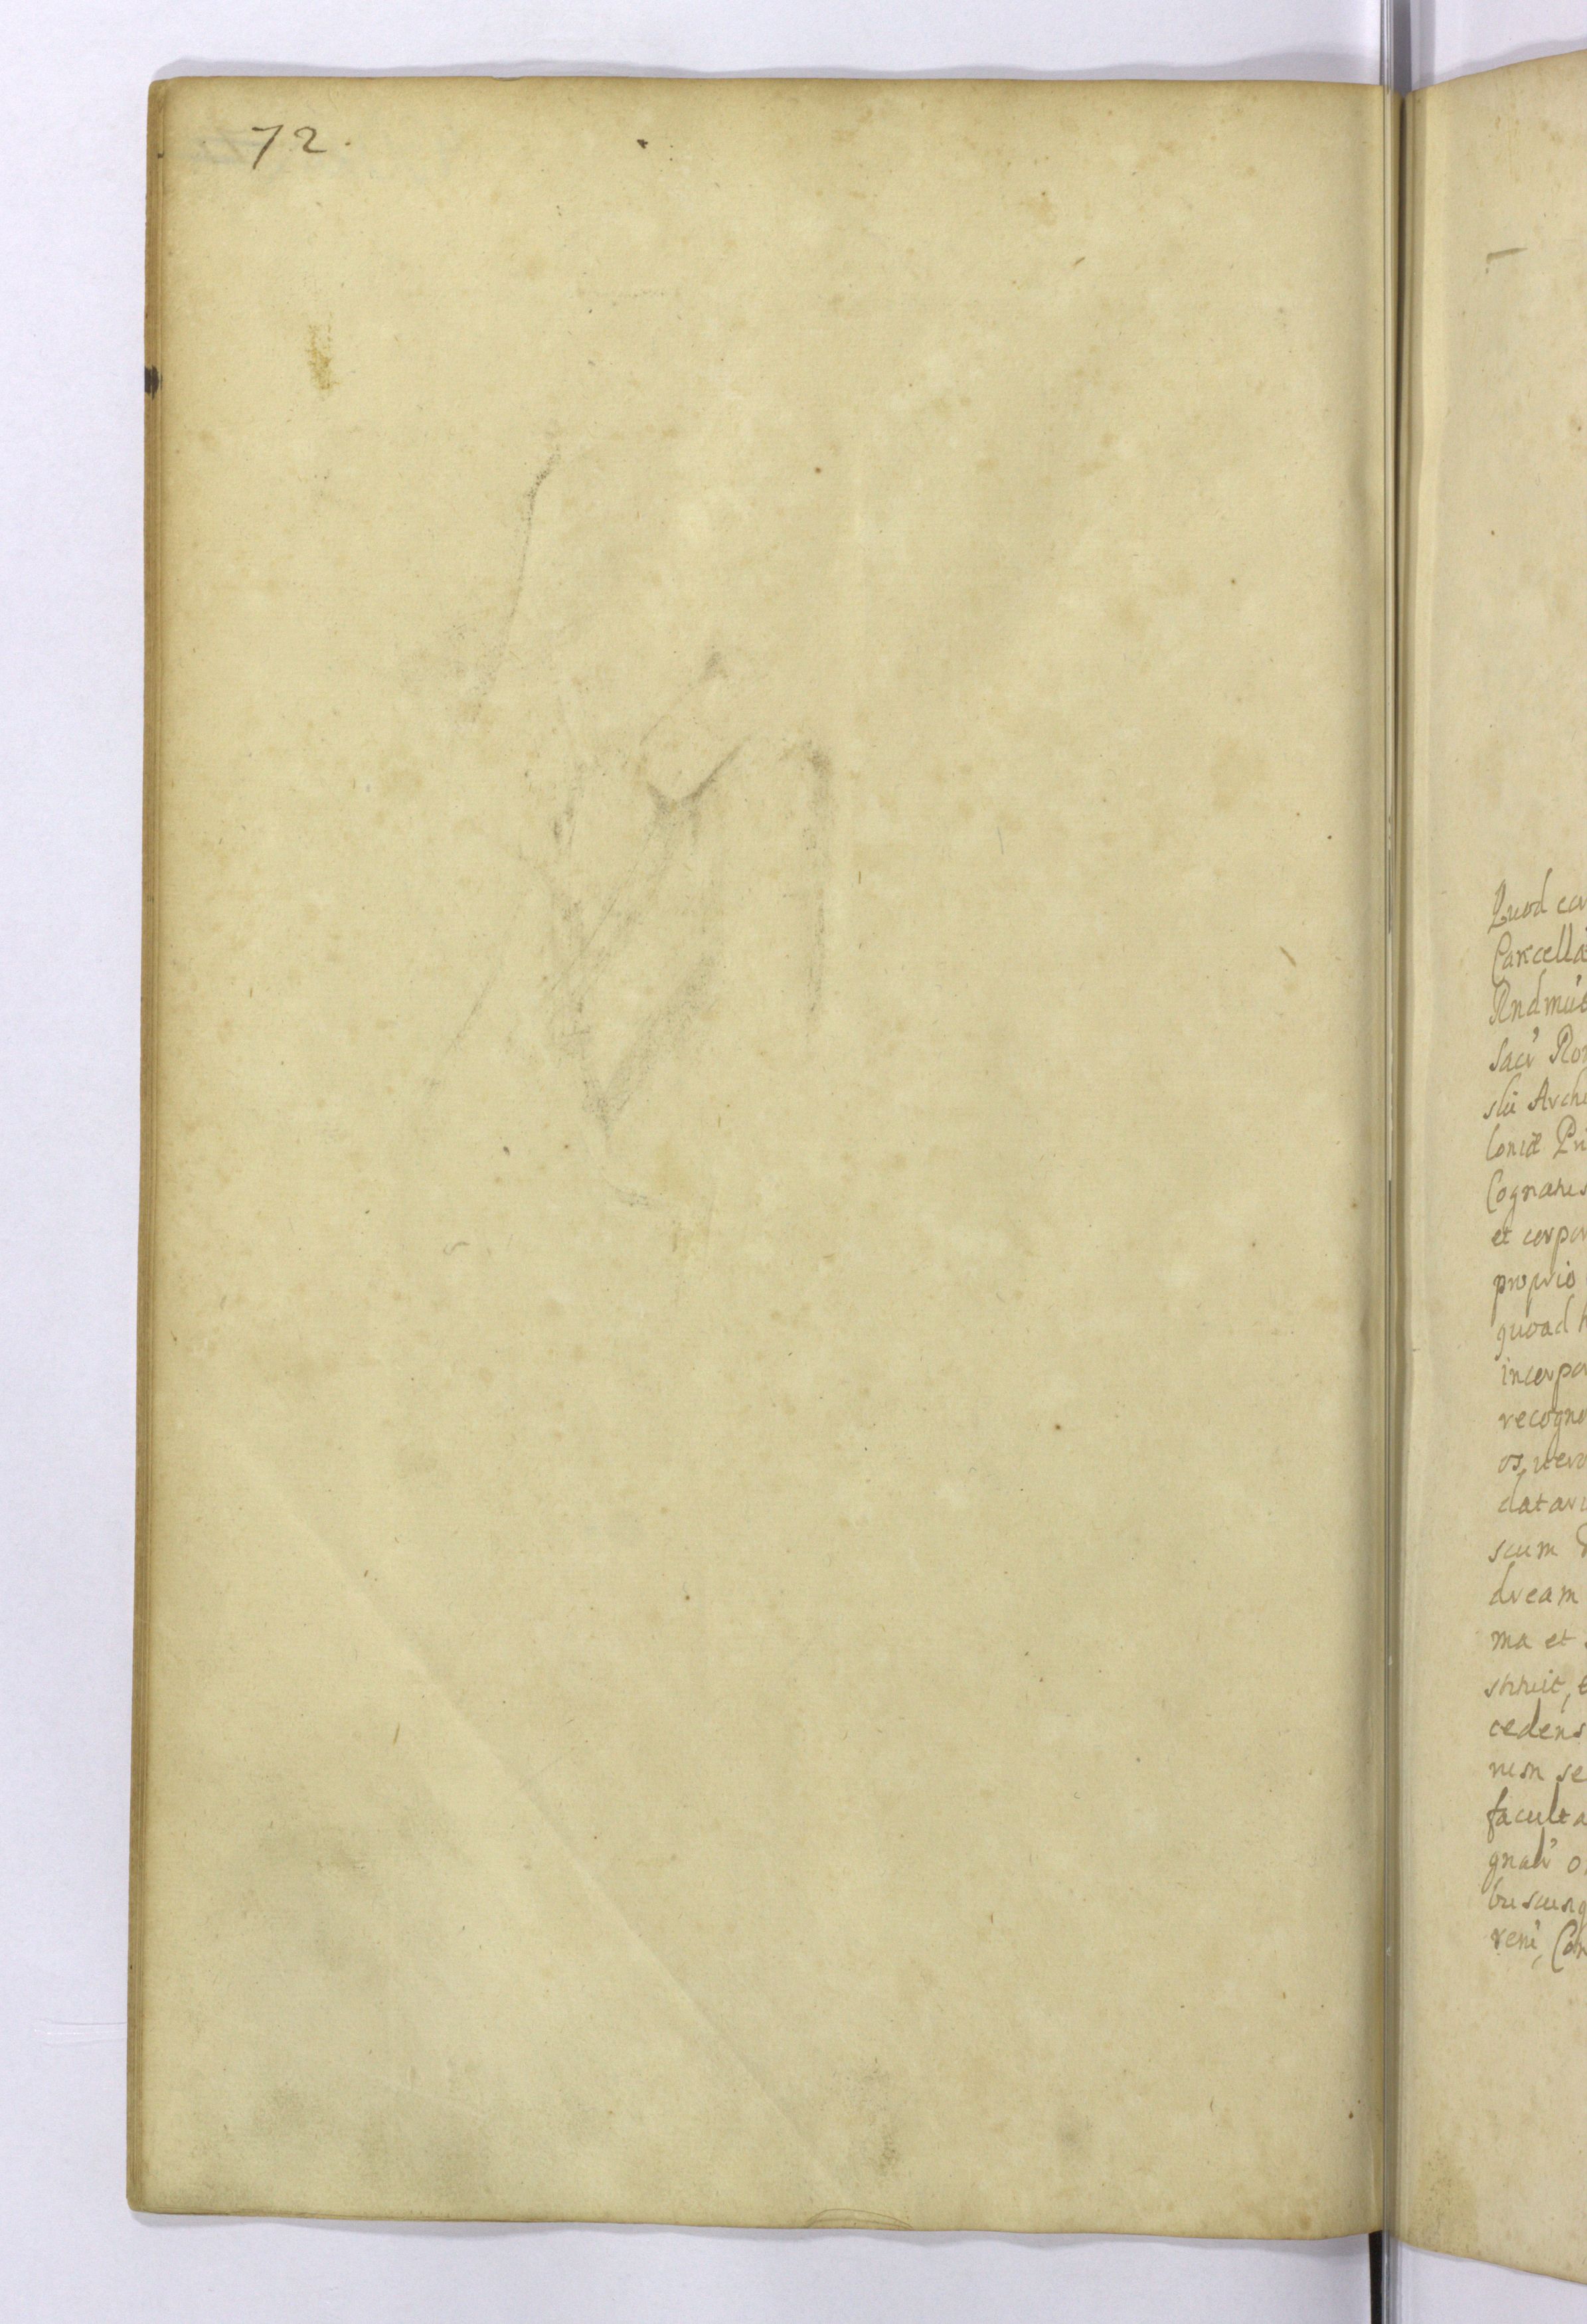 72.
Quod co
Cancella
Rndmu
sacr' Ro
sli Arch
loniæ Pri
Cognates
et corpor
proprio
quoad h
incorpor
recogno
os, vero
datari
scum
dream
ma et
stituit, t
cedens
nem se
faculta
gnali' o
buscunq
reni, Con